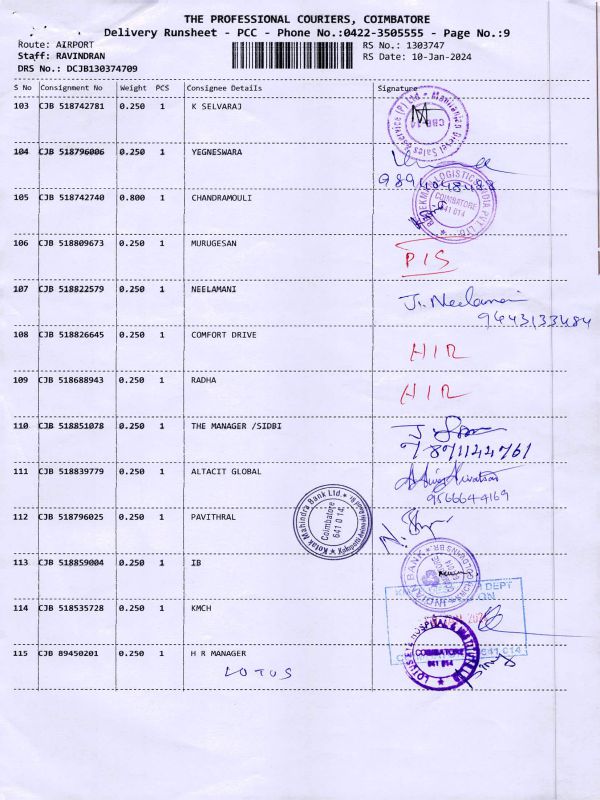 THE PROFESSIONAL COURIERS, COIMBATORE
Delivery Runsheet - PCC - Phone No.:0422-3505555 - Page No.:9
Route: AIRPORT RS No.: 1303747
Staff: RAVINDRAN RS Date: 10-Jan-2024
DRS No.: DCJB130374709
S No Consignment No Weight PCS Consignee Details Signature
103 CJB 518742781 0.250 1 K SELVARAJ
104 CJB 518796006 0.250 1 YEGNESWARA
9894048488
105 CJB 518742740 0.800 1 CHANDRAMOULI
COIMBATORE
641 014
106 CJB 518809673 0.250 1 MURUGESAN
PIS
107 CJB 518822579 0.250 1 NEELAMANI
J. Neelamani
9443133484
108 CJB 518826645 0.250 1 COMFORT DRIVE
HIR
109 CJB 518688943 0.250 1 RADHA
HIR
110 CJB 518851078 0.250 1 THE MANAGER /SIDBI
111 CJB 518839779 0.250 1 ALTACIT GLOBAL
9566644169
112 CJB 518796025 0.250 1 PAVITHRAL
Kotak Mahindra Bank Ltd.
Coimbatore
641 014
113 CJB 518859004 0.250 1 IB
INDIAN BANK
114 CJB 518535728 0.250 1 KMCH
DEPT
115 CJB 89450201 0.250 1 H R MANAGER
LOTUS
COIMBATORE
641 014